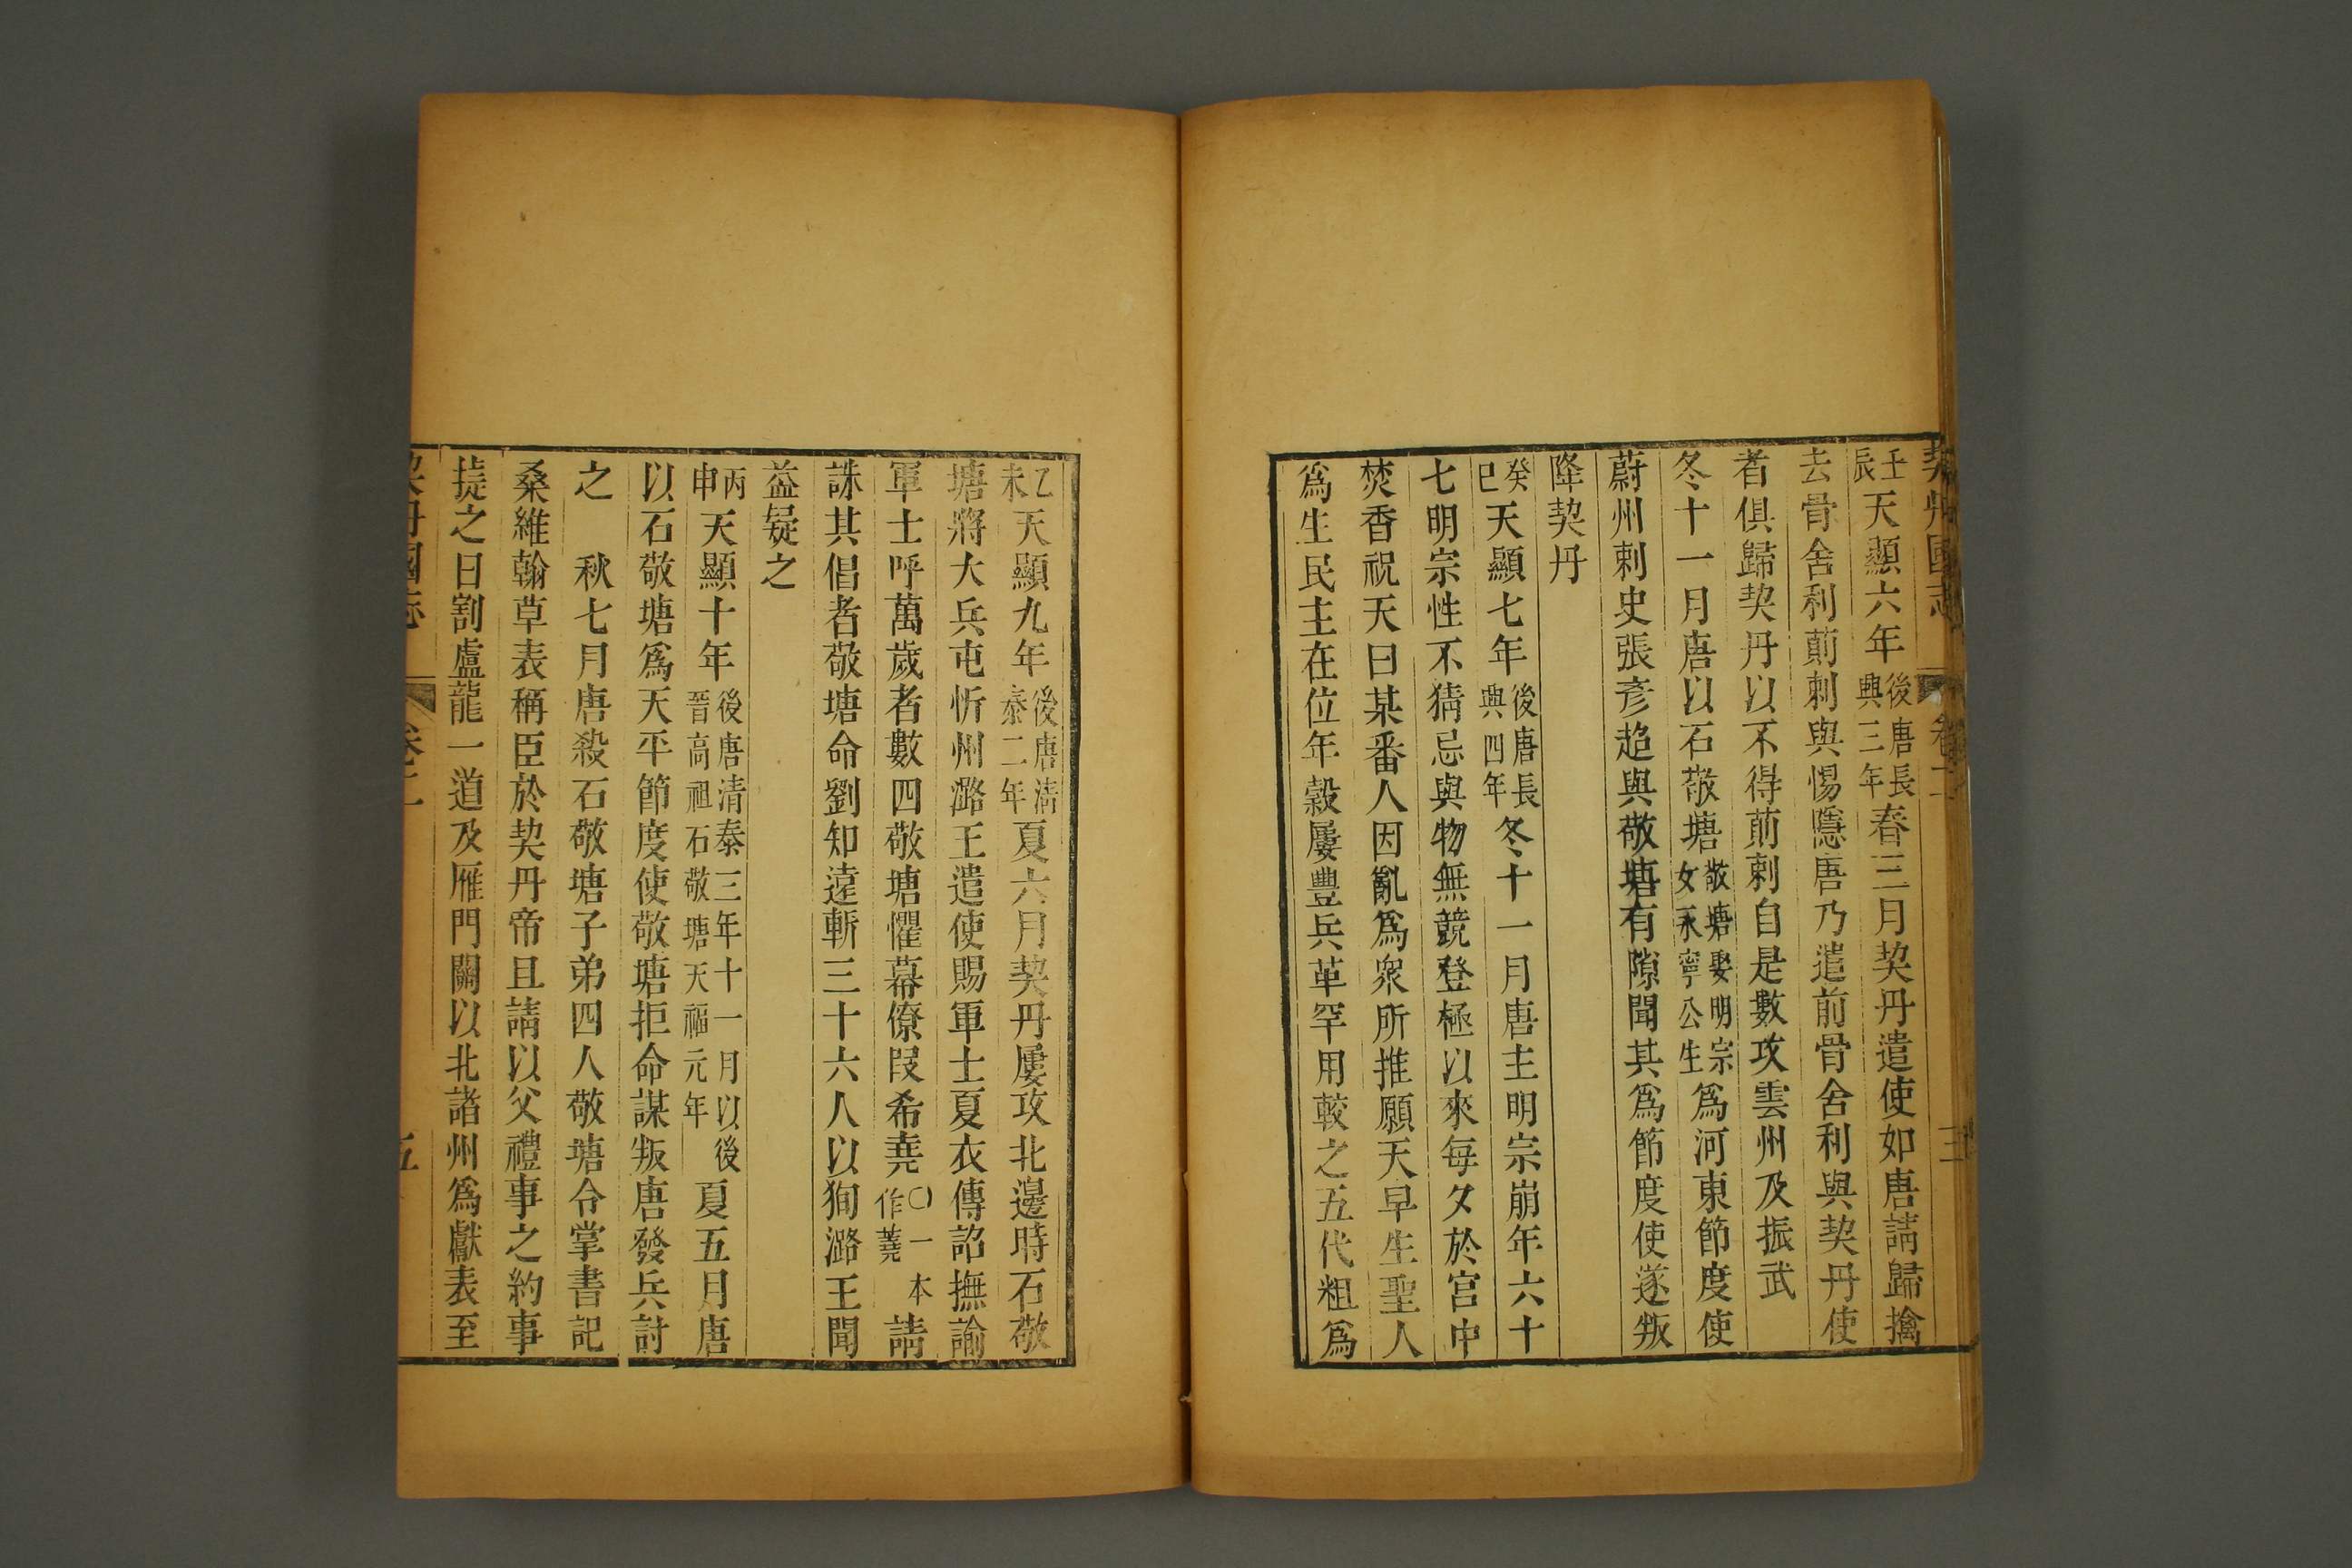 契丹國志 卷二 三
壬辰天顯六年後唐長興三年春三月契丹遣使如唐請歸擒
去骨舍利萴剌與惕隱唐乃遣前骨舍利與契丹使
者俱歸契丹以不得萴剌自是數攻雲州及振武
冬十一月唐以石敬塘敬塘娶明宗女永寧公生為河東節度使
蔚州剌史張彥趙與敬塘有隙聞其為節度使遂叛
降契丹
癸巳天顯七年後唐長興四年冬十一月唐主明宗崩年六十
七明宗性不猜忌與物無競登極以來每夕於宮中
焚香祝天曰某番人因亂為衆所推願天早生聖人
為生民主在位年穀屢豐兵革罕用較之五代粗為
乙未天顯九年後唐清泰二年夏六月契丹屢攻北邊時石敬
塘將大兵屯忻州潞王遣使賜軍士夏衣傳詔撫諭
軍士呼萬歲者數四敬塘懼幕僚段希堯〇一本作蕘請
誅其倡者敬塘命劉知遠斬三十六人以狥潞王聞
益疑之
丙申天顯十年後唐清泰三年十一月以後晉高祖石敬塘天福元年夏五月唐
以石敬塘為天平節度使敬塘拒命謀叛唐發兵討
之 秋七月唐殺石敬塘子弟四人敬塘令掌書記
桑維翰草表稱臣於契丹帝且請以父禮事之約事
㨗之日割盧龍一道及雁門關以北諸州為獻表至
契丹國志 卷二 五